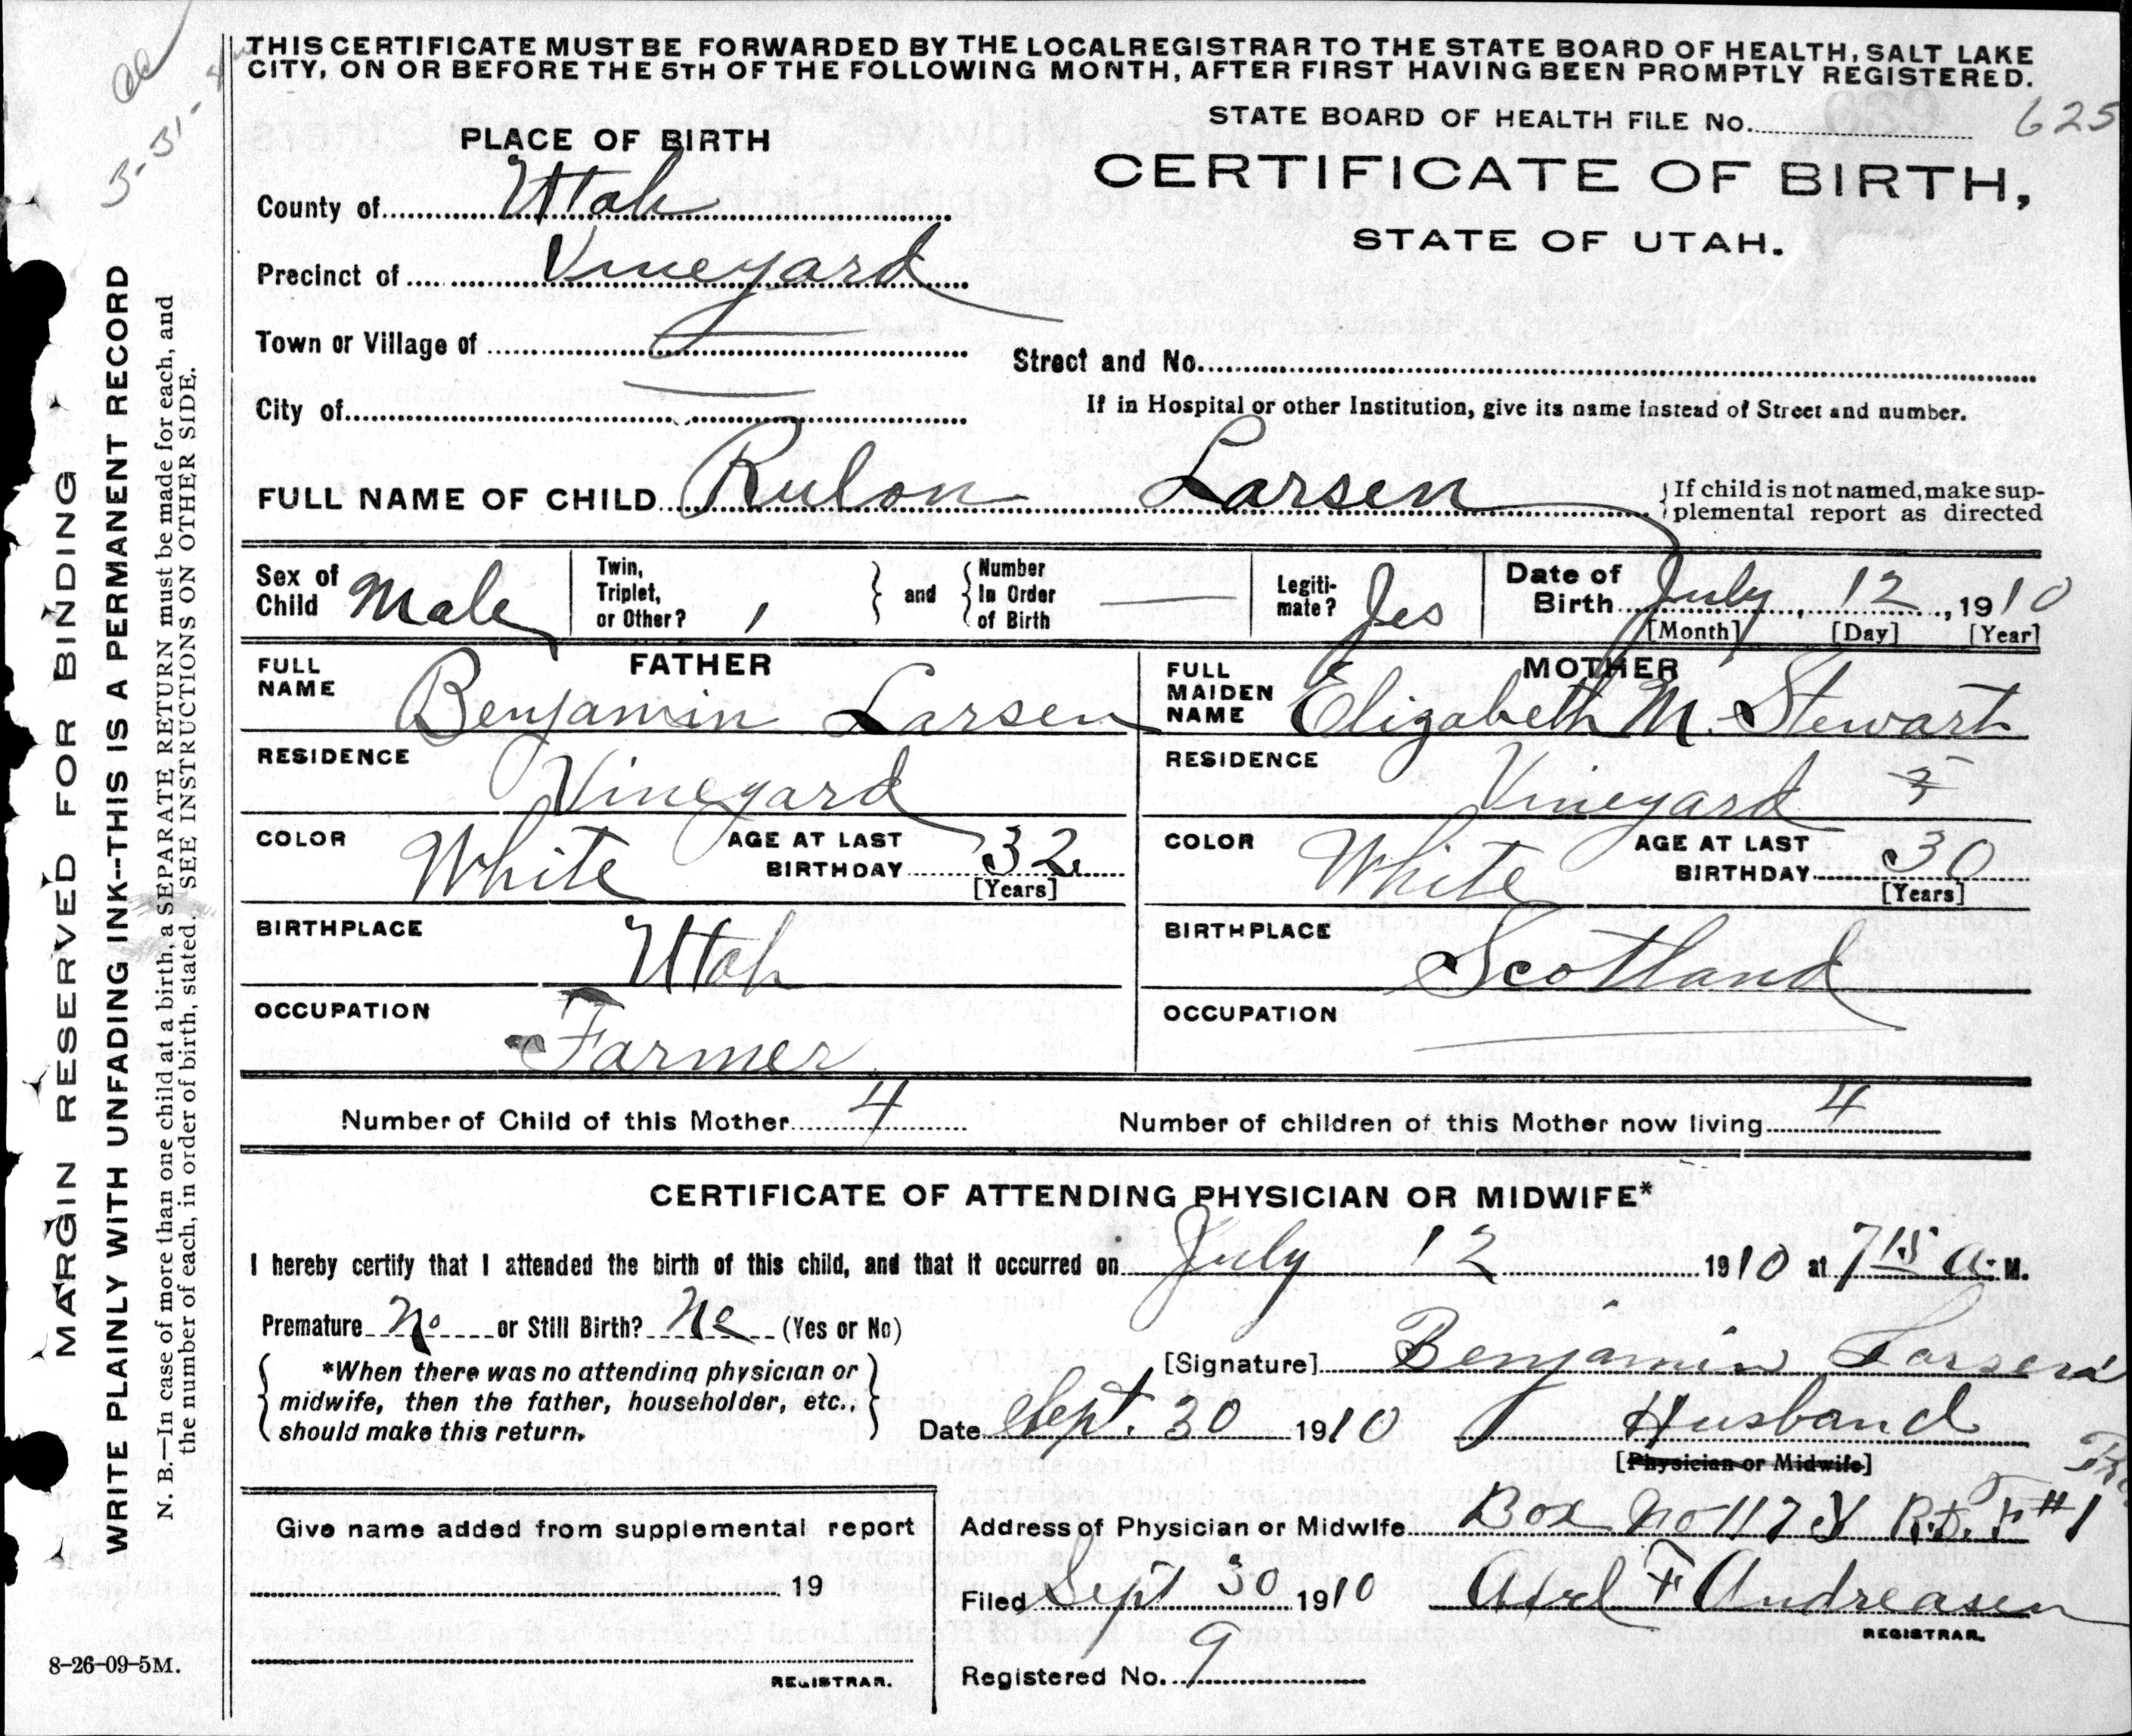 THIS CERTIFICATE MUST BE FORWARDED BY THE LOCAL REGISTRAR TO THE STATE BOARD OF HEALTH, SALT LAKE
CITY, ON OR BEFORE THE 5TH OF THE FOLLOWING MONTH, AFTER FIRST HAVING BEEN PROMPTLY REGISTERED.
STATE BOARD OF HEALTH FILE No. 625
PLACE OF BIRTH
CERTIFICATE OF BIRTH,
STATE OF UTAH.
County of Utah
Precinct of Vineyard
Town or Village of
Street and No.
City of
If in Hospital or other Institution, give its name instead of Street and number.
FULL NAME OF CHILD Rulon Larsen
If child is not named, make sup-
plemental report as directed
Sex of Child Male
Twin, Triplet, or Other? 1
and
Number In Order of Birth —
Legiti-mate? Yes
Date of Birth July, 12, 1910
[Month] [Day] [Year]
FATHER
FULL NAME Benjamin Larsen
RESIDENCE Vineyard
COLOR White AGE AT LAST BIRTHDAY 32
[Years]
BIRTHPLACE Utah
OCCUPATION Farmer
MOTHER
FULL MAIDEN NAME Elizabeth M. Stewart
RESIDENCE Vineyard
COLOR White AGE AT LAST BIRTHDAY 30
[Years]
BIRTHPLACE Scotland
OCCUPATION
Number of Child of this Mother 4 Number of children of this Mother now living 4
CERTIFICATE OF ATTENDING PHYSICIAN OR MIDWIFE*
I hereby certify that I attended the birth of this child, and that it occurred on July 12 1910 at 7 15 a. M.
Premature No or Still Birth? No (Yes or No)
*When there was no attending physician or
midwife, then the father, householder, etc.,
should make this return.
[Signature] Benjamin Larsen
Date Sept. 30 1910 Husband
[Physician or Midwife]
Address of Physician or Midwife Box No 117 R.D. #1
Give name added from supplemental report
19
REGISTRAR.
Filed Sept 30 1910 F Andreasen
REGISTRAR.
Registered No. 9
8-26-09-5M.
MARGIN RESERVED FOR BINDING
WRITE PLAINLY WITH UNFADING INK--THIS IS A PERMANENT RECORD
N. B.—In case of more than one child at a birth, a SEPARATE RETURN must be made for each, and
the number of each, in order of birth, stated. SEE INSTRUCTIONS ON OTHER SIDE.